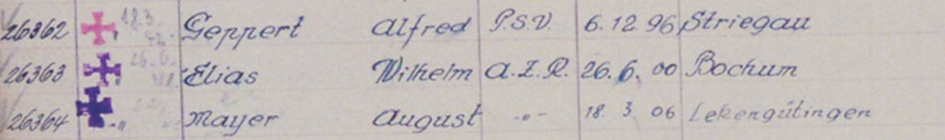 26362 Geppert Alfred P.S.V. 6.12.96 Striegau
26363 Elias Wilhelm A.Z.R. 26.6.00 Bochum
26364 Mayer August -"- 18.3.06 Lekengütingen